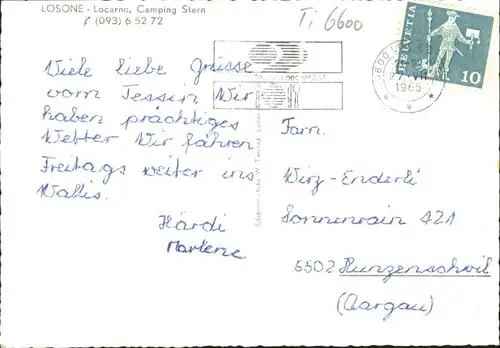 LOSONE - Locarno, Camping Stern
(093) 6 52 72
Ti 6600
HELVETIA
10
1965
Viele liebe Grüsse
vom Tessin Wir
haben prächtiges
Wetter Wir fahren
Freitags weiter ins
Wallis.
Härdi
Marlene
Fam.
Wirz-Enderli
Sonnenrain 421
5502 Hunzenschwil
(Aargau)